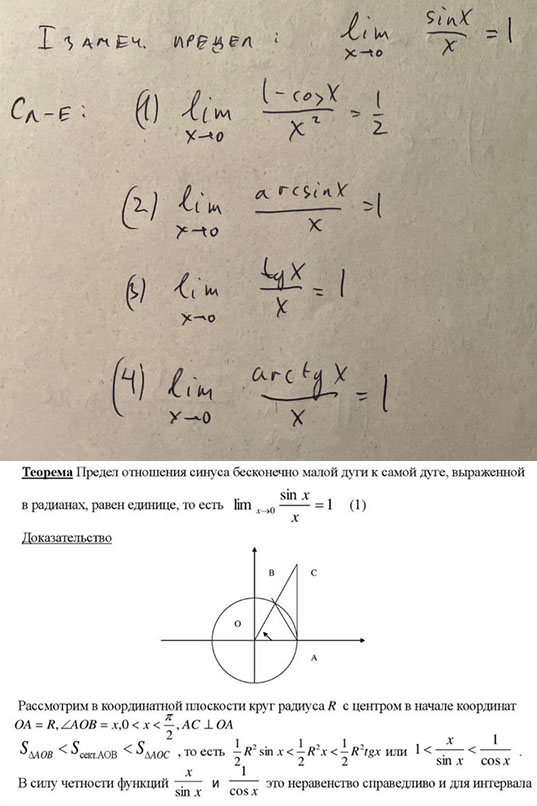 I замеч. предел: lim x→0 sinx/x = 1
Сл-е: (1) lim x→0 1-cosx/x² = 1/2
(2) lim x→0 arcsinx/x = 1
(3) lim x→0 tgx/x = 1
(4) lim x→0 arctgx/x = 1
Теорема Предел отношения синуса бесконечно малой дуги к самой дуге, выраженной
в радианах, равен единице, то есть lim x→0 sin x/x = 1 (1)
Доказательство
B C
O
A
Рассмотрим в координатной плоскости круг радиуса R с центром в начале координат
OA = R, ∠AOB = x, 0 < x < π/2, AC ⊥ OA
S ΔAOB < S сект.AOB < S ΔAOC, то есть 1/2 R² sin x < 1/2 R² x < 1/2 R² tgx или 1 < x/sin x < 1/cos x.
В силу четности функций x/sin x и 1/cos x это неравенство справедливо и для интервала